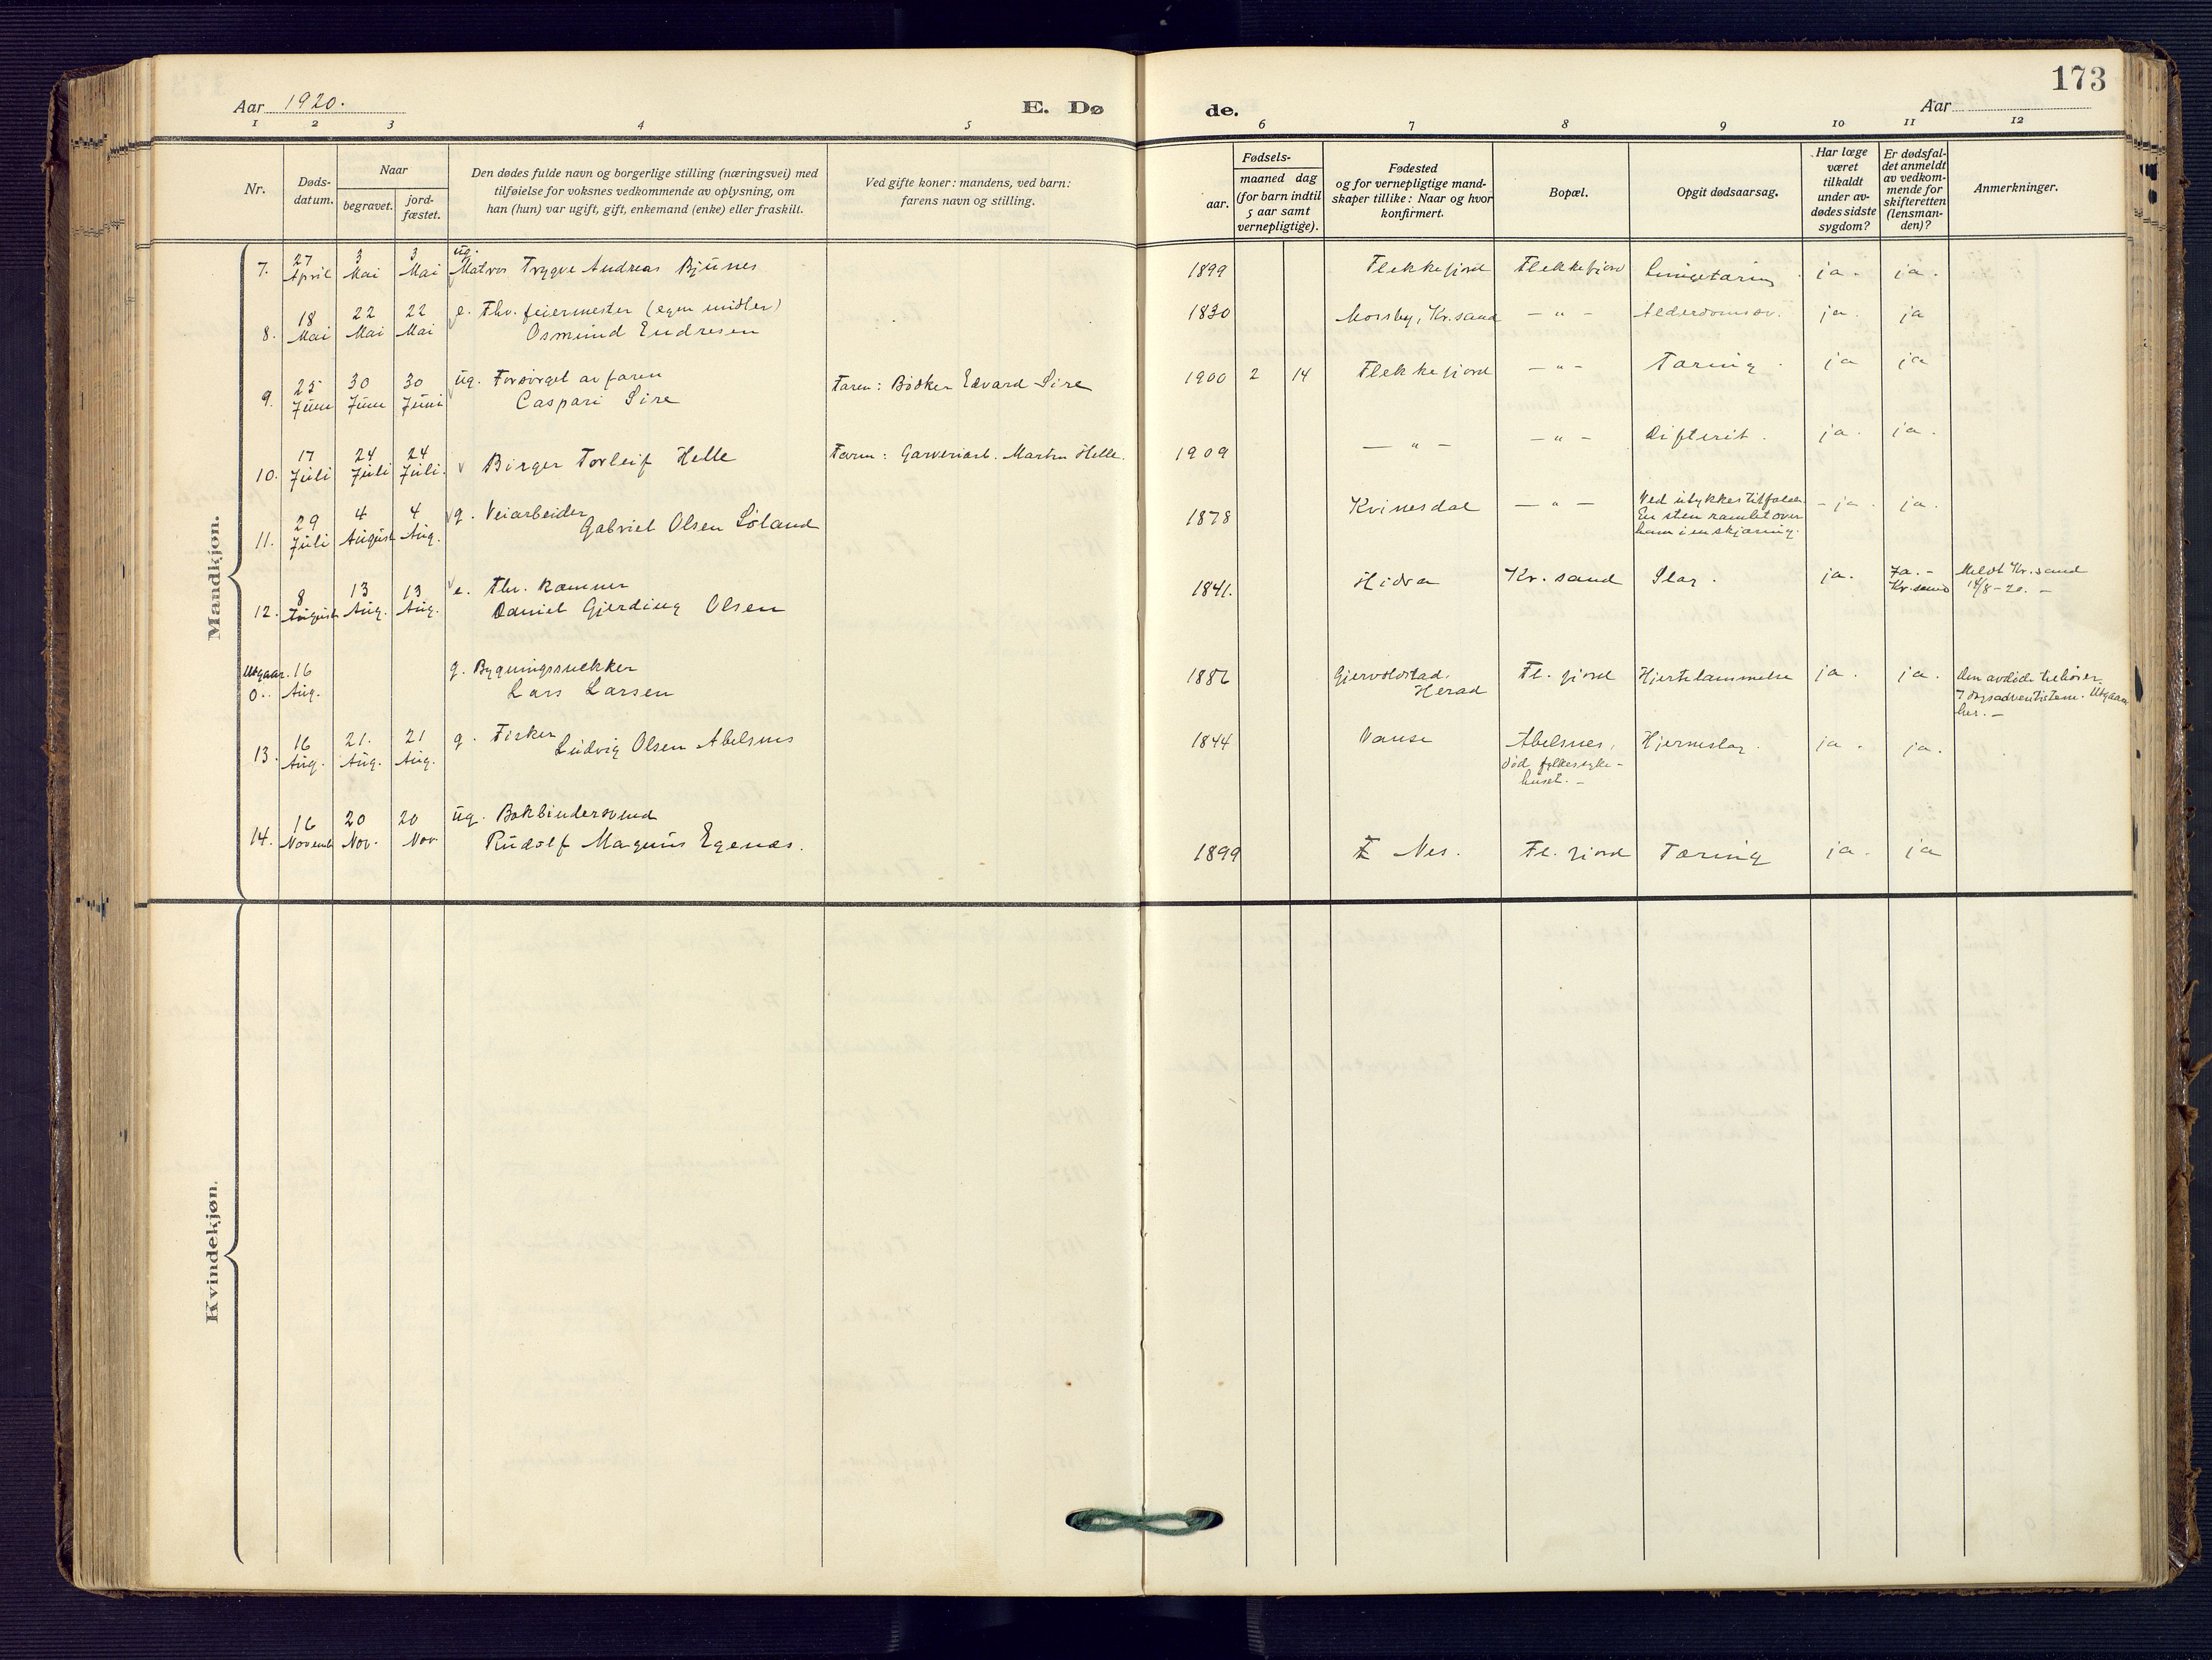 173
Aar 1920.
E. Døde.
Aar
1 2 3 4 5 6 7 8 9 10 11 12
Nr.
Døds-
datum.
Naar
begravet.
jord-
fæstet.
Den dødes fulde navn og borgerlige stilling (næringsvei) med
tilføielse for voksnes vedkommende av oplysning, om
han (hun) var ugift, gift, enkemand (enke) eller fraskilt.
Ved gifte koner: mandens, ved barn:
farens navn og stilling.
Fødsels-
aar.
maaned dag
(for barn indtil
5 aar samt
vernepligtige).
Fødested
og for vernepligtige mand-
skaper tillike: Naar og hvor
konfirmert.
Bopæl.
Opgit dødsaarsag.
Har læge
været
tilkaldt
under av-
dødes sidste
sygdom?
Er dødsfal-
det anmeldt
av vedkom-
mende for
skifteretten
(lensman-
den)?
Anmerkninger.
Mandkjøn.
7. 27 April 3 Mai 3 Mai ug. Matros Trygve Andreas Bjunes 1899 Flekkefjord Flekkefjord Lungetæring ja. ja.
8. 18 Mai 22 Mai 22 Mai e. Fhv. feiermester (egne midler)
Osmund Endresen 1830 Mosby, Kr.sand - " - Alderdomssv. ja. ja
9. 25 Juni 30 Juni 30 Juni ug. Forsørget av faren
Caspari Sire Faren: Bødker Edvard Sire 1900 2 14 Flekkefjord - " - Tæring. ja ja
10. 17 Juli 24 Juli 24 Juli. Birger Torleif Helle Faren: Garveriarb. Martin Helle. 1909 - " - - " - Difterit. ja. ja.
11. 29 Juli 4 August 4 Aug. g. Veiarbeider
Gabriel Olsen Loland 1878 Kvinesdal - " - Ved ulykkestilfælde.
En sten ramlet over
ham i en skjæring. - ja. ja.
12. 8 August 13 Aug. 13 Aug. e. Fhv. Rømmer
Daniel Gjerding Olsen 1841. Hidra Kr. sand Slag. ja. Ja. -
Kr.sand Meldt Kr.sand
14/8-20. -
Utgaar. 0. 16 Aug. g. Bygningssnekker
Lars Larsen 1886 Gjervoldstad,
Herad Fl. fjord Hjertelammelse ja. ja. Den avdøde tilhører
7 dagsadventistene. Utgaar
her. -
13. 16 Aug. 21. Aug. 21 Aug. g. Fisker
Ludvig Olsen Abelsnes 1844 Vanse Abelsnes,
død fylkessyke-
huset. - Hjerneslag. ja. ja.
14. 16 November 20 Nov. 20 Nov ug. Bokbindersvend
Rudolf Magnus Egenæs. 1899 Nes. Fl. fjord Tæring ja. ja
Kvindekjøn.